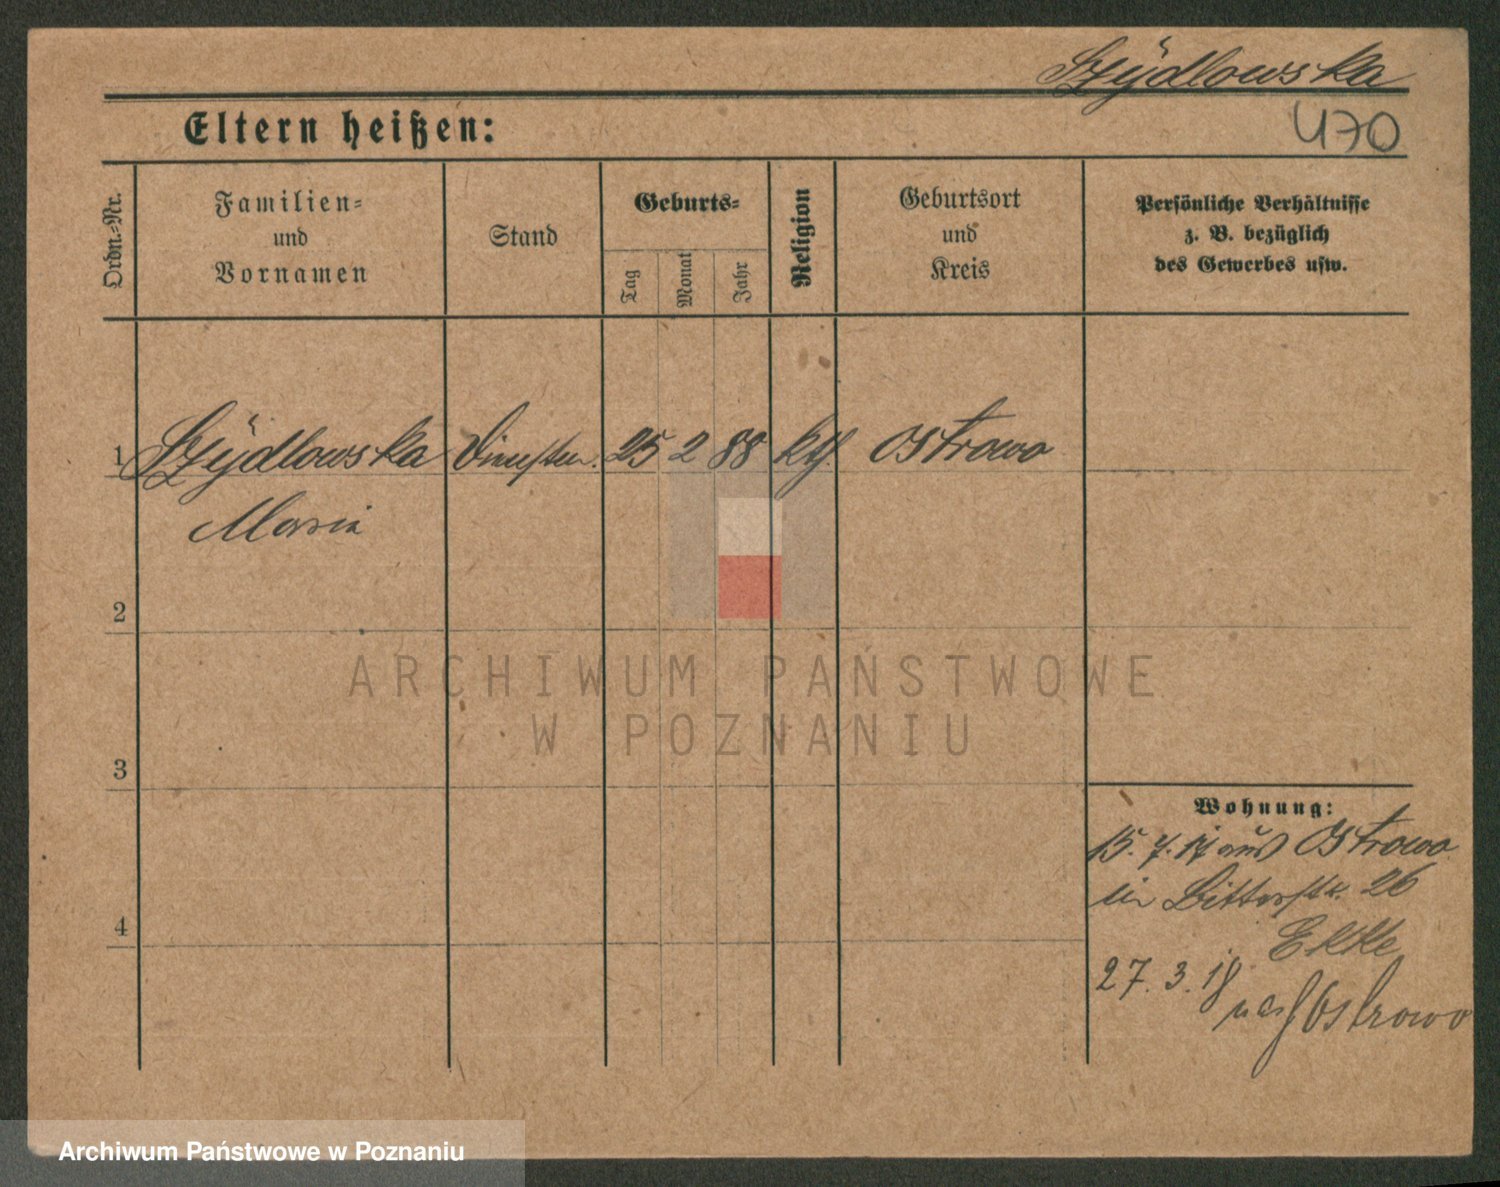 Szÿdlowska
Eltern heißen:
470
Ordn.-Nr.
Familien-
und
Vornamen
Stand
Geburts-
Tag
Monat
Jahr
Religion
Geburtsort
und
Kreis
Persönliche Verhältnisse
z. B. bezüglich
des Gewerbes usw.
1 Szÿdlowska 25 2 88 kth. Ostrowo
Maria
2
3
4
Wohnung:
15. 7. 17 aus Ostrowo
in 26
27. 3. 18
nach Ostrowo
ARCHIWUM PAŃSTWOWE
W POZNANIU
Archiwum Państwowe w Poznaniu